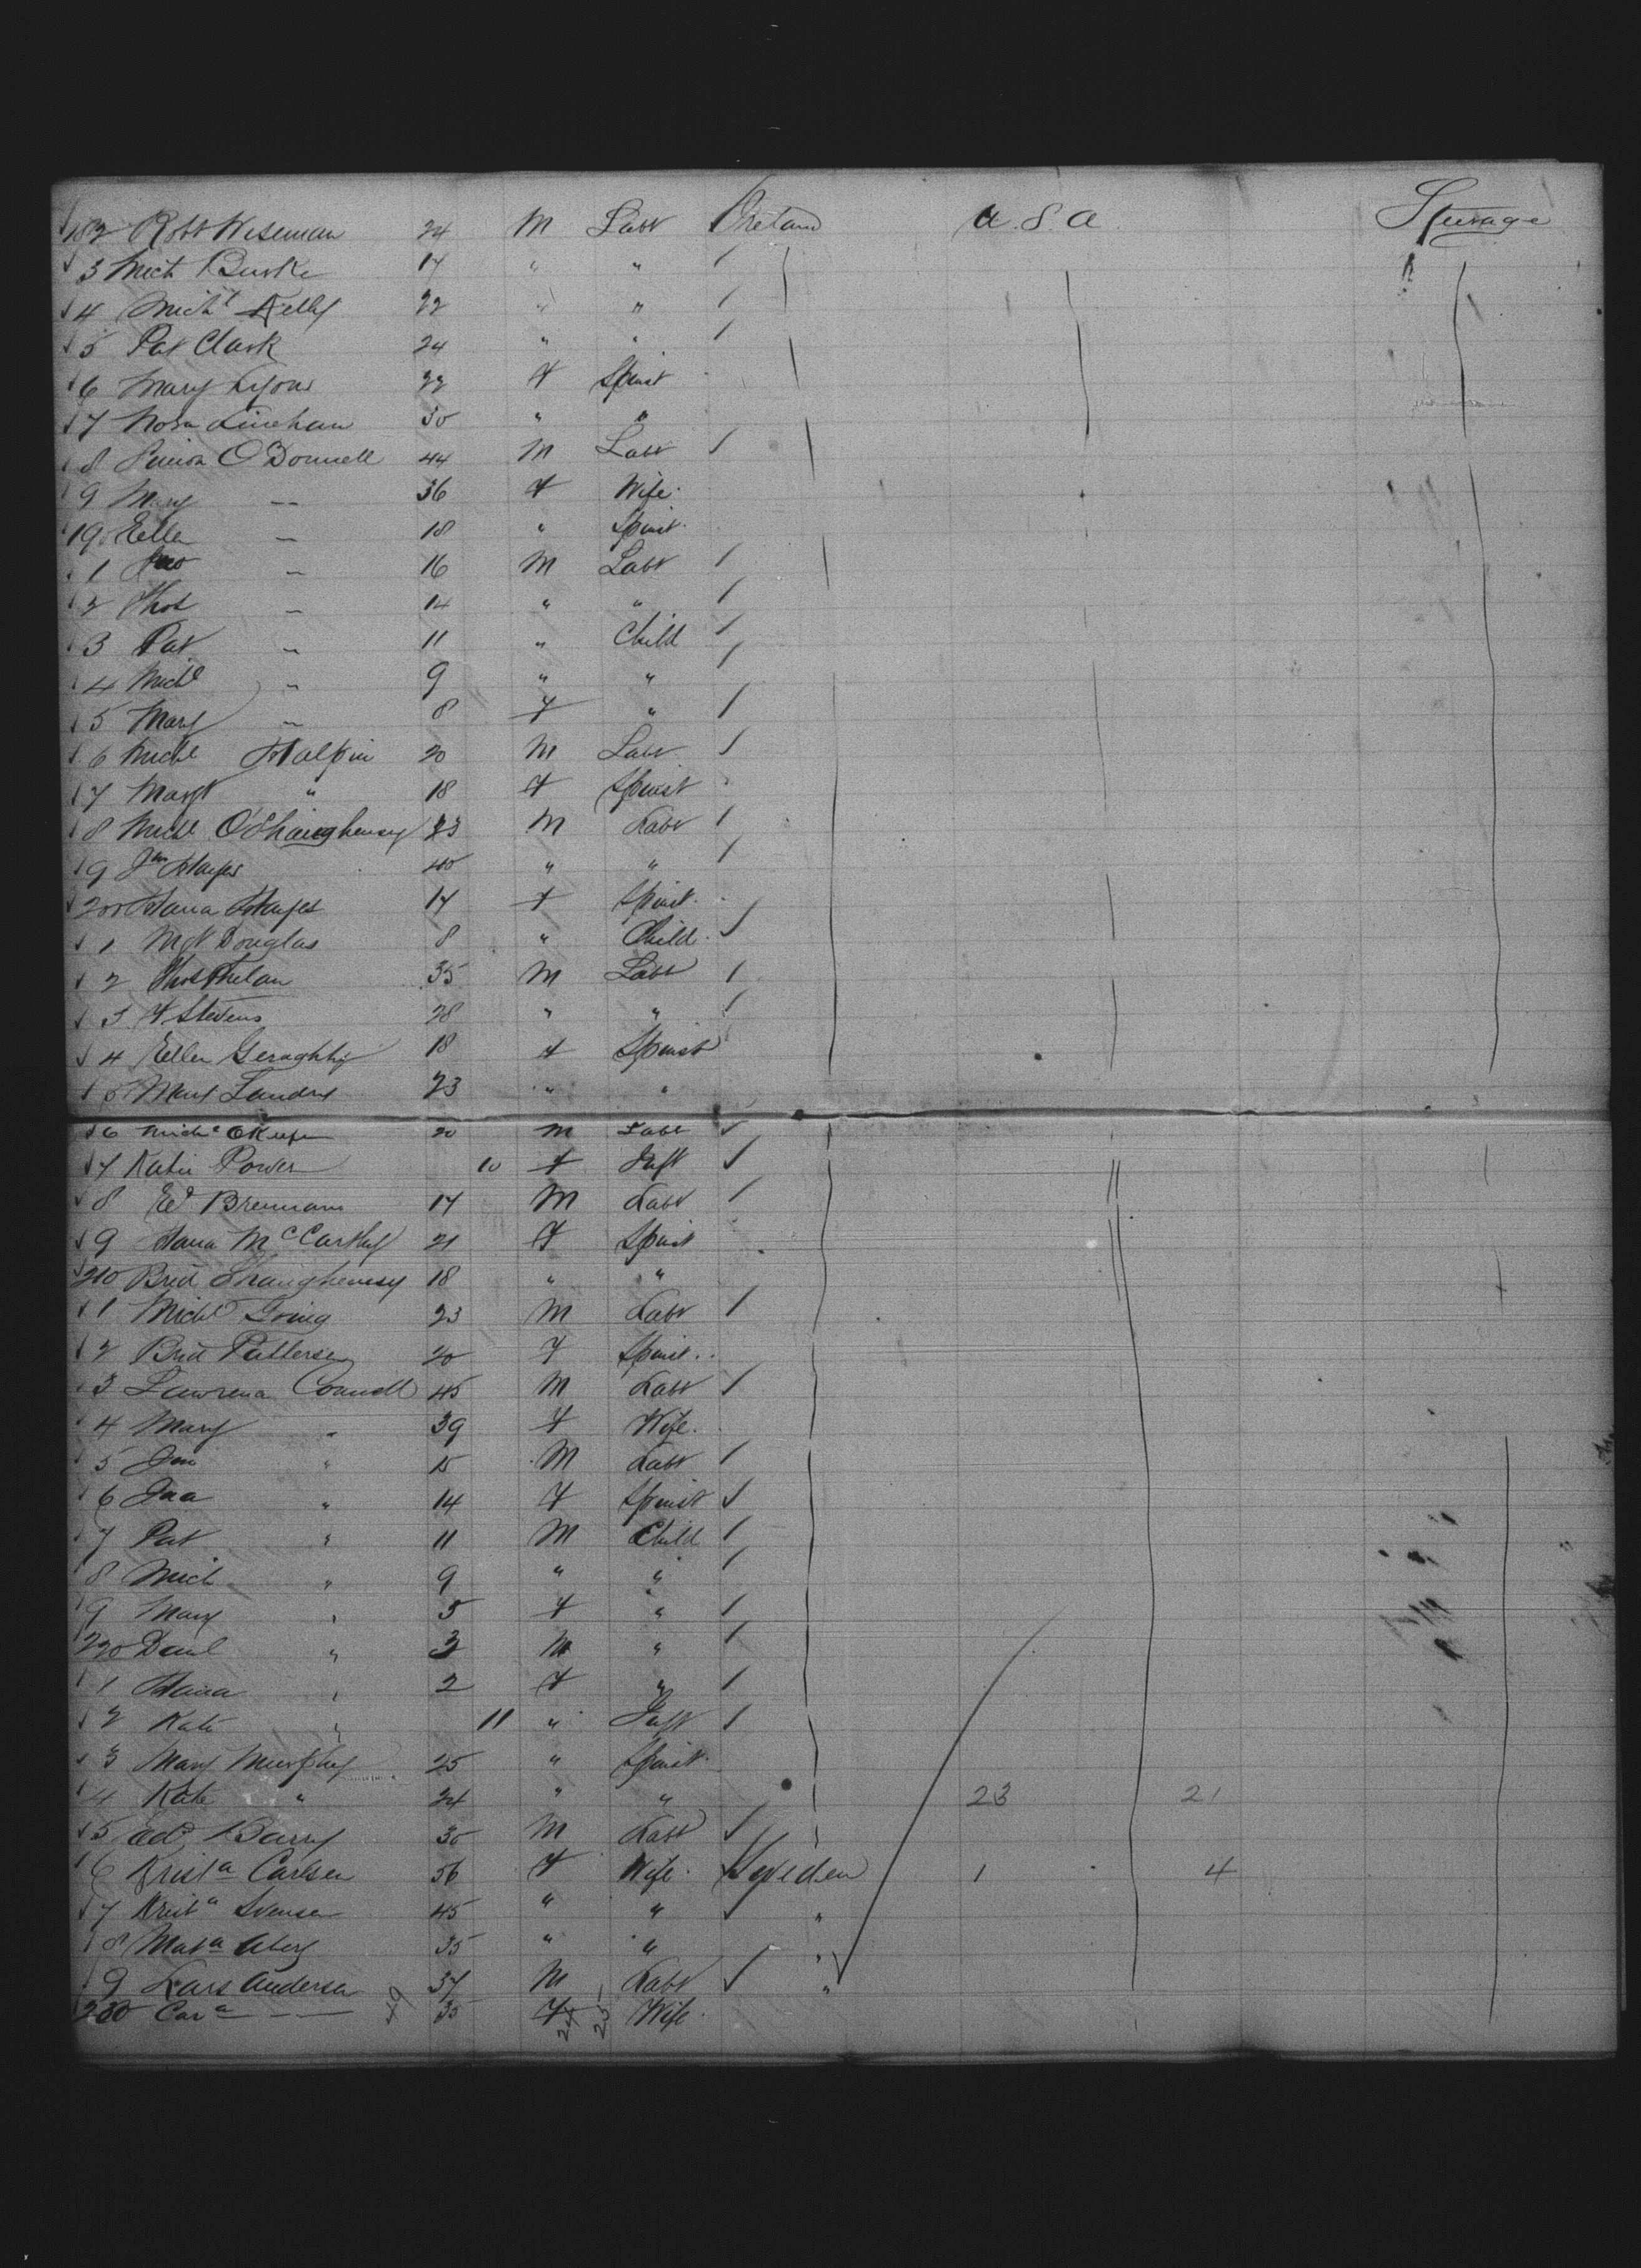 182 Robt Wiseman 24 M Labr Ireland U.S.A Steerage
3 Mich Burke 17 " "
4 Michl Kelly 22 " "
5 Pat Clark 24 " "
6 Mary Lyons 22 F Spinst
7 Nora Linehan 30 " "
8 Simon O'Donnell 44 M Labr
9 Mary — 36 F Wife
190 Ellen — 18 " Spinst
1 Jno — 16 M Labr
2 Thos — 14 " "
3 Pat " 11 " Child
4 Michl " 9 " "
5 Mary — 8 F "
6 Michl Halpin 20 M Labr
7 Margt " 18 F Spinst
8 Michl O'Shaughnessy 23 M Labr
9 Jas Hayes 40 " "
200 Hana Hayes 17 F Spinst
1 Mgt Douglas 8 " Child
2 Thos Phelan 35 M Labr
3 F Stevens 28 " "
4 Ellen Geraghty 18 F Spinst
5 Mary Landry 23 " "
6 Michl O'Keefe 20 M Labr
7 Katie Power 10 F Inft
8 Ed Brennan 17 M Labr
9 Hana McCarthy 21 F Spinst
210 Brid Shaughnessy 18 " "
1 Michl 23 M Labr
2 Brid Patterson 20 F Spinst
3 Lawrence Connell 45 M Labr
4 Mary " 39 F Wife
5 Jno " 15 M Labr
6 " 14 F Spinst
7 Pat " 11 M Child
8 Mich " 9 " "
9 Mary " 5 F "
220 Danl " 3 M "
1 Hana " 2 F "
2 Kate " 11 " Inft
3 Mary Murphy 25 " Spinst
4 Kate " 24 " " 23 21
5 Ed Barry 30 M Labr
6 Krista Carlsen 56 F Wife Sweden 1 4
7 Krista Svensen 45 " " "
8 Mata Aberg 35 " " "
9 Lars Andersen 37 M Labr "
230 Cara — 35 F Wife
49 24 25